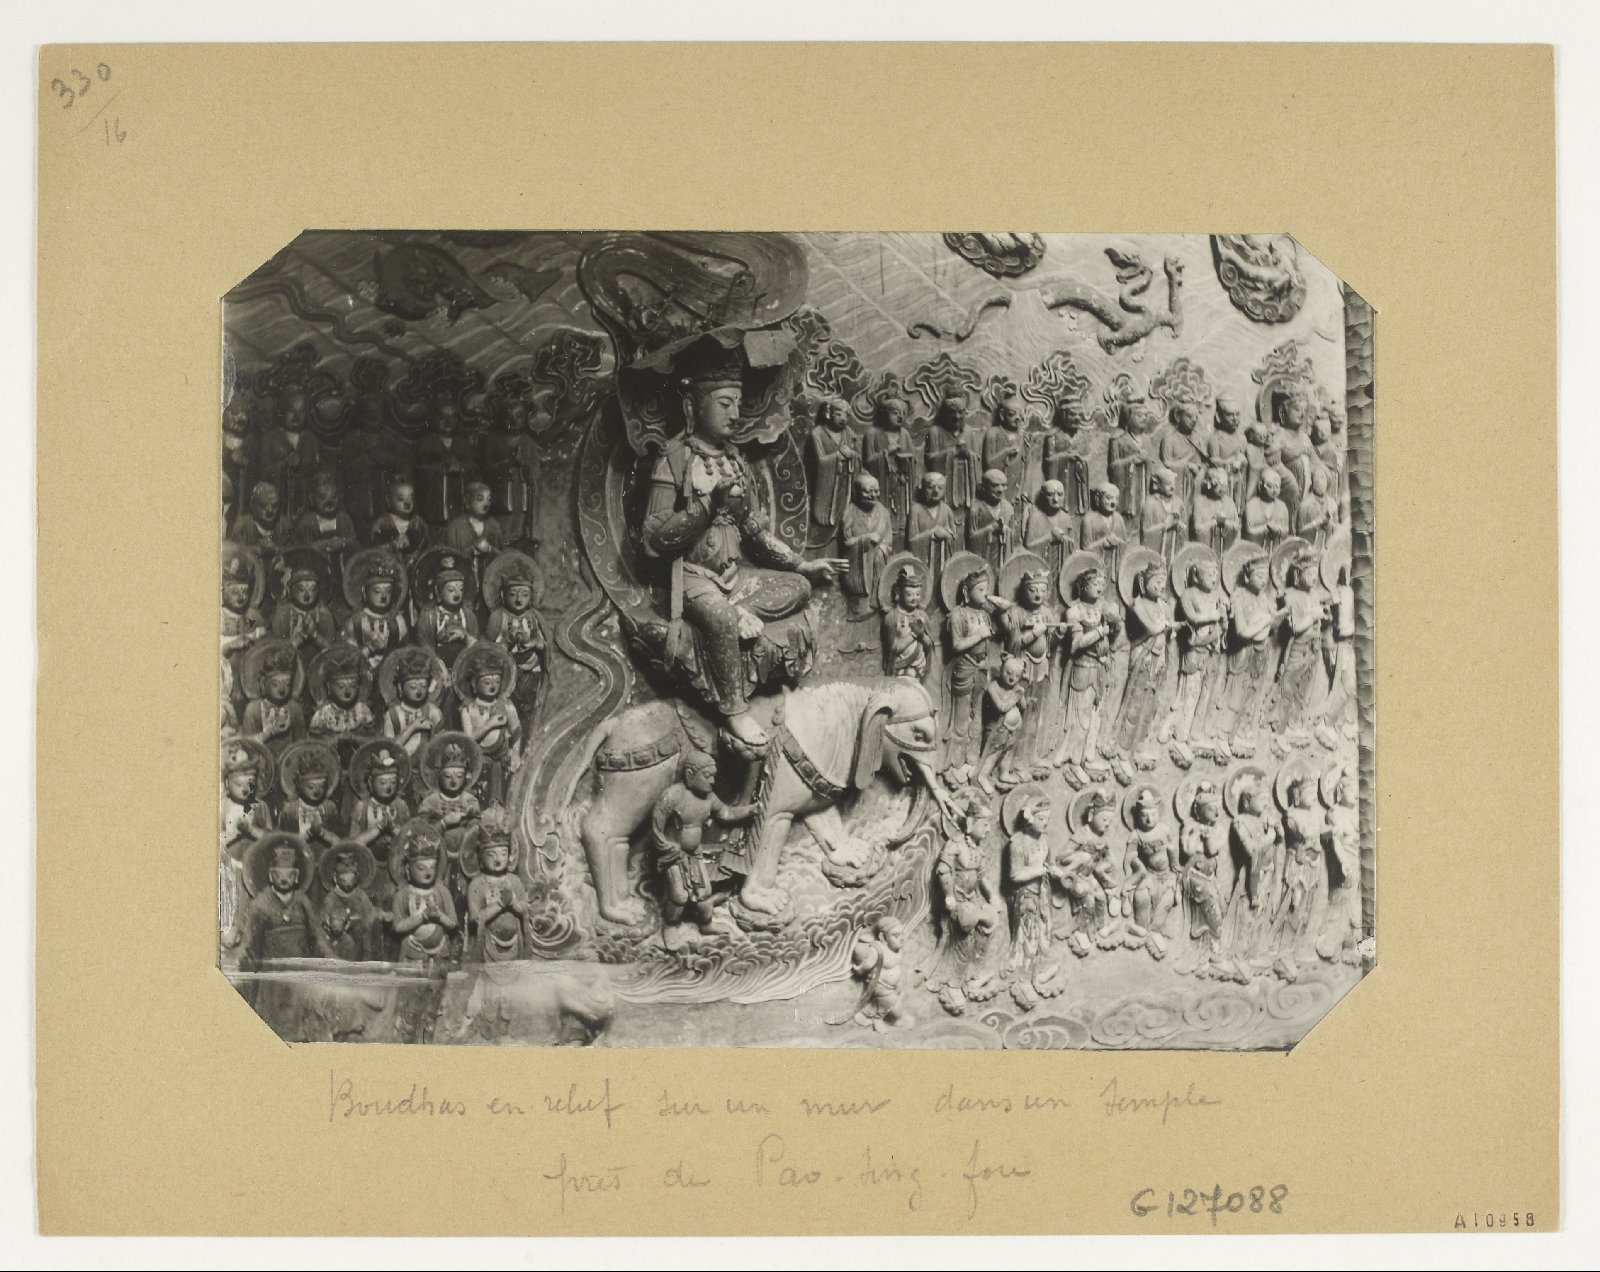 330
16
Boudhas en relief sur un mur dans un temple
près de Pao-ting-fou
G127088
A10958